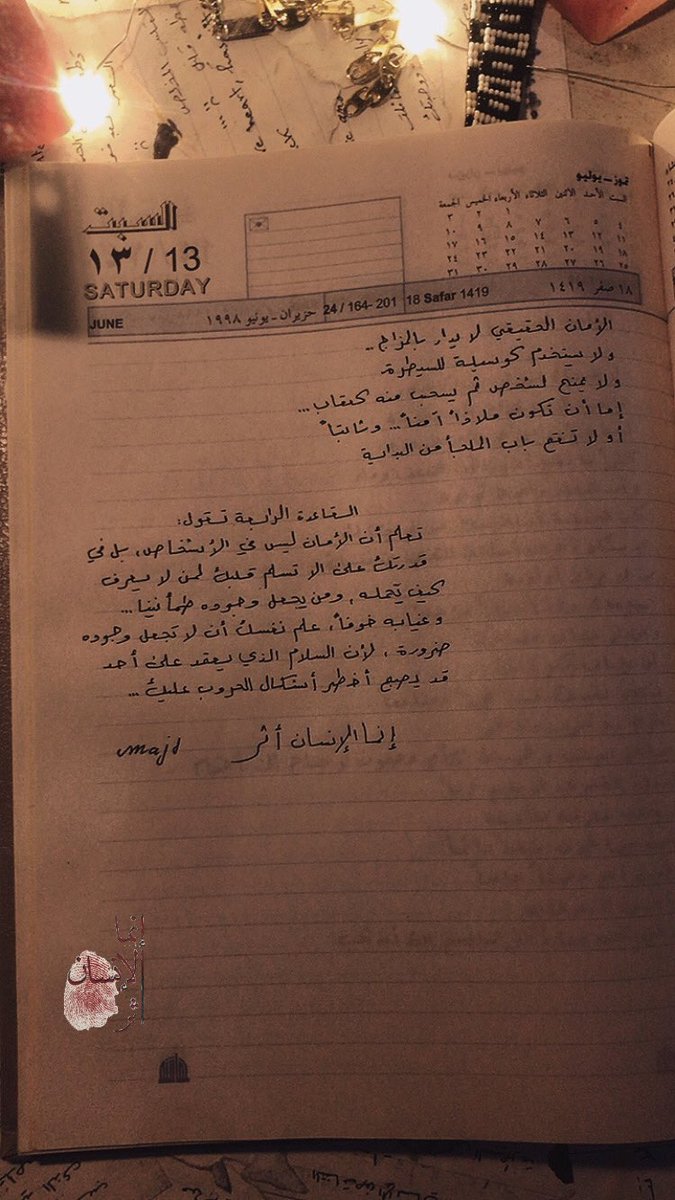 السبت
١٣ / 13
SATURDAY
تموز - يوليو
السبت الأحد الاثنين الثلاثاء الأربعاء الخميس الجمعة
١ ٢ ٣
٤ ٥ ٦ ٧ ٨ ٩ ١٠
١١ ١٢ ١٣ ١٤ ١٥ ١٦ ١٧
١٨ ١٩ ٢٠ ٢١ ٢٢ ٢٣ ٢٤
٢٥ ٢٦ ٢٧ ٢٨ ٢٩ ٣٠ ٣١
JUNE حزيران - يونيو ١٩٩٨ 24 / 164- 201 18 Safar 1419 ١٨ صفر ١٤١٩
الأمان الحقيقي لا يدار بالمزاج..
ولا يستخدم كوسيلة للسيطرة.
ولا يمنح لشخص ثم يسحب منه كعقاب...
إما أن تكون ملاذاً آمناً... وثابتاً
أو لا تفتح باب الملجأ من البداية
القاعدة الرابعة تقول:
تعلم أن الأمان ليس في الأشخاص، بل في
قدرتك على الا تسلم قلبك لمن لا يعرف
كيف يحمله، ومن يجعل وجوده طمأنينا...
وغيابه خوفاً، علم نفسك أن لا تجعل وجوده
ضرورة، لأن السلام الذي يعقد على أحد
قد يصبح أخطر أشكال الحروب عليك...
إنما الإنسان أثر majd
إنما
الإنسان
أثر